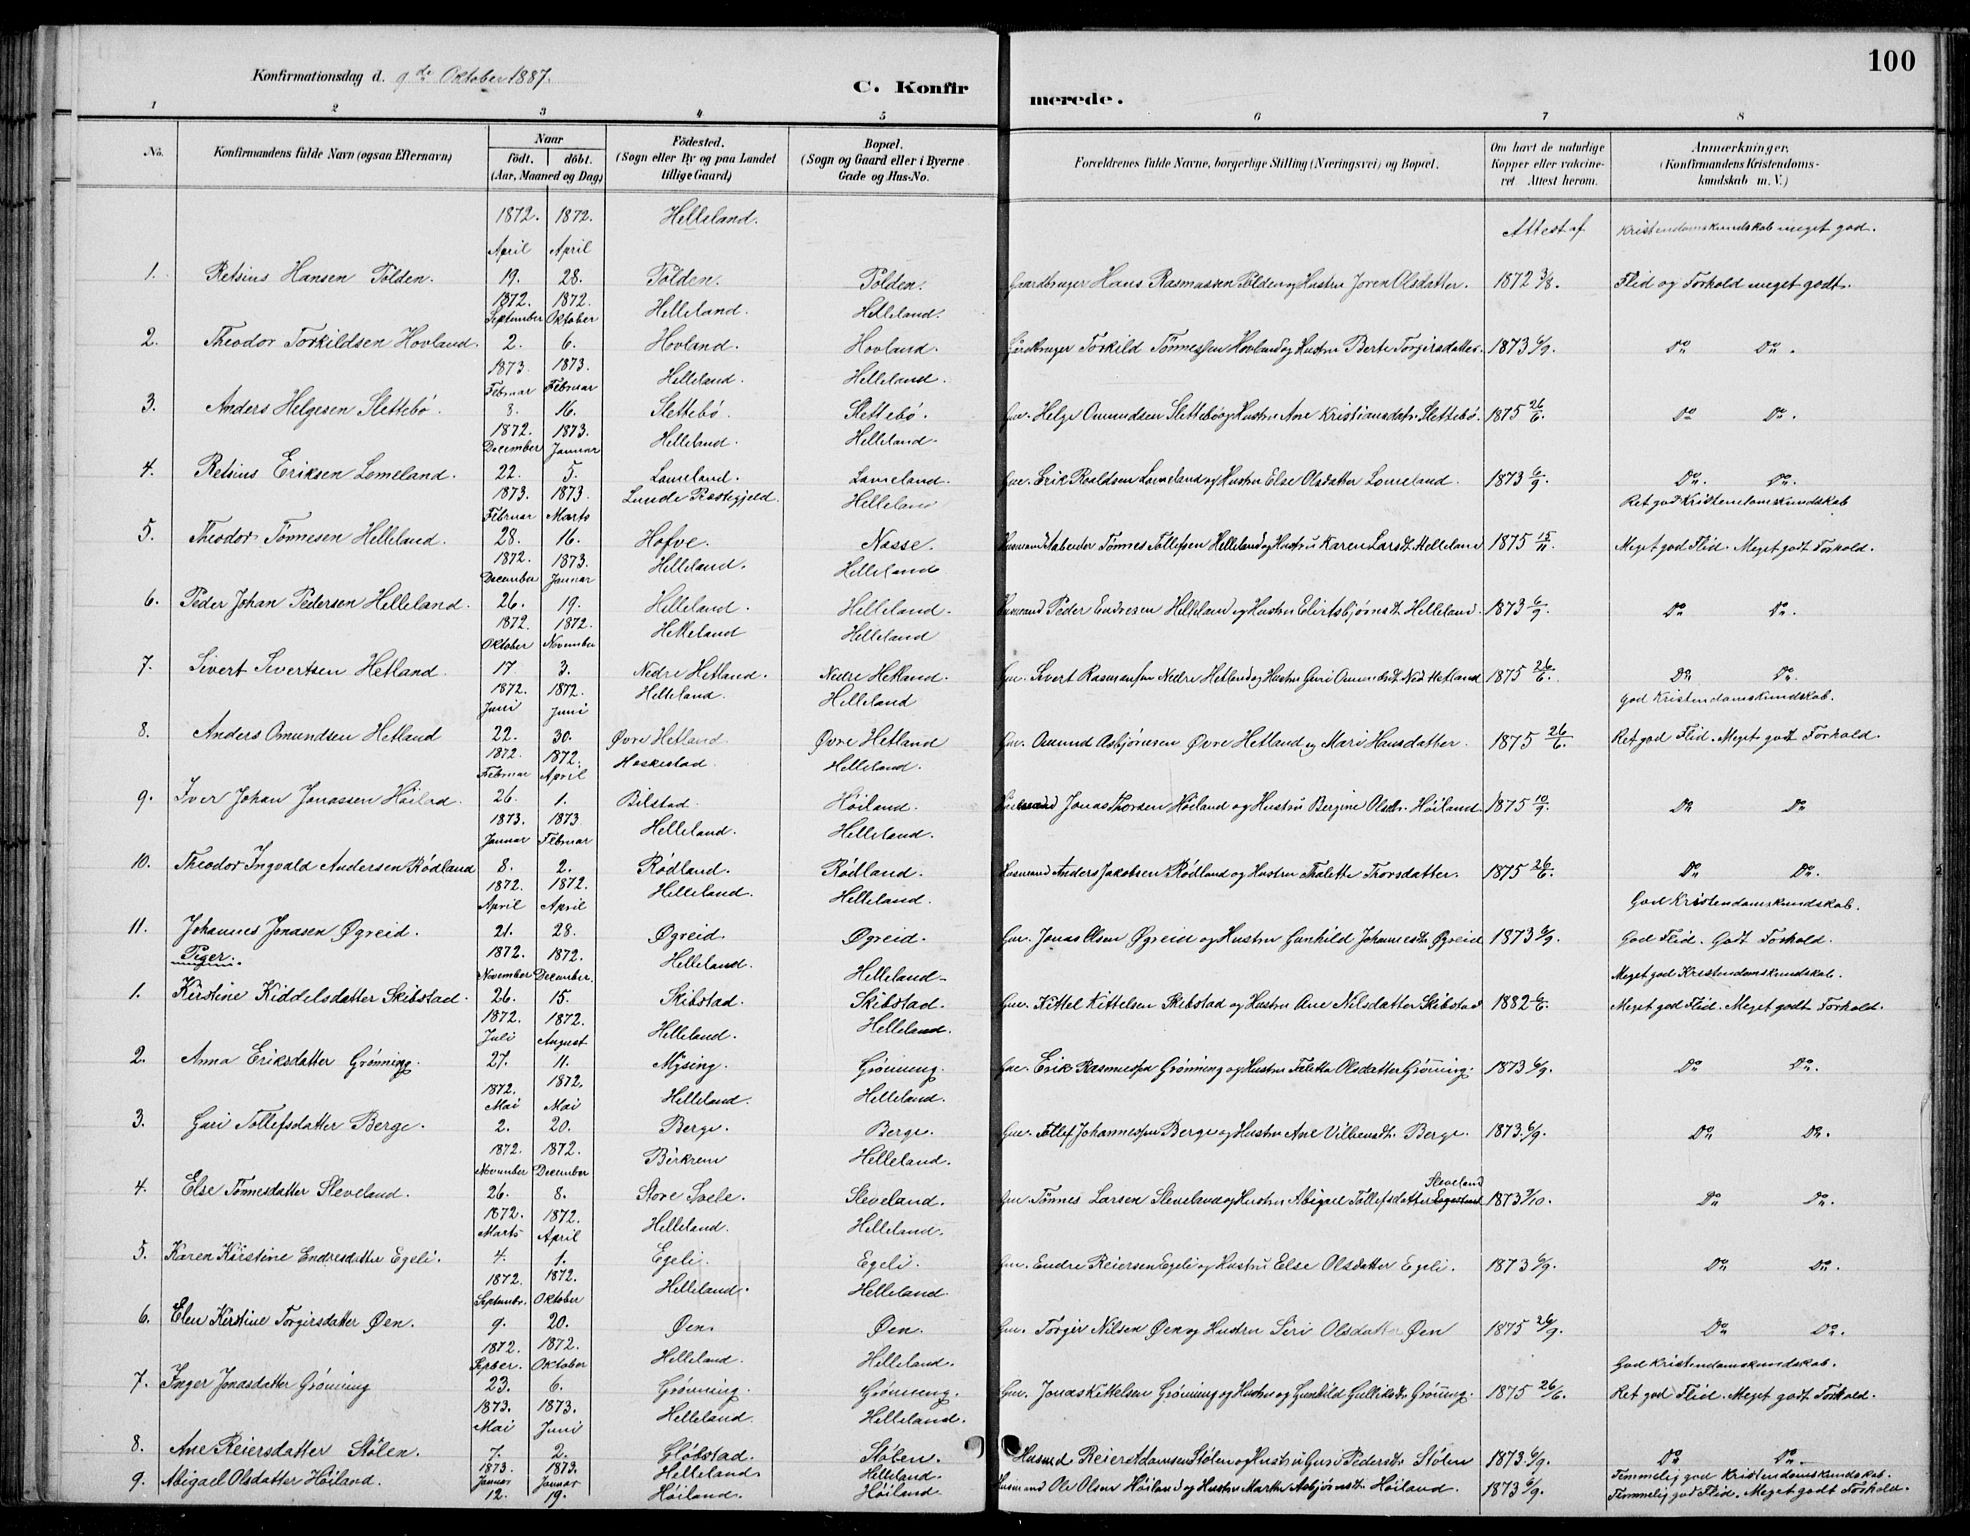 100
Konfirmationsdag d. 9de Oktober 1887.
C. Konfirmerede.
1 2 3 4 5 6 7 8
No. Konfirmandens fulde Navn (ogsaa Efternavn) Naar födt. döbt. (Aar, Maaned og Dag) Födested. (Sogn eller By og paa Landet tillige Gaard) Bopæl. (Sogn og Gaard eller i Byerne Gade og Hus-No. Forældrenes fulde Navne, borgerlige Stilling (Næringsvei) og Bopæl. Om havt de naturlige Kopper eller vakcineret Attest herom. Anmærkninger. (Konfirmandens Kristendomskundskab m. V.)
1872. 1872. Helleland. Attest af Kristendomskundskab meget god.
April April
1. Retsius Hansen Tölden. 19. 28. Tölden. Tölden. Gaardbruger Hans Rasmussen Tölden og Hustru Joren Olsdatter. 1872 3/8. Flid og Forhold meget godt.
1872. 1872. Helleland. Helleland.
September Oktober
2. Theodor Torkildsen Hovland. 2. 6. Hovland. Hovland. Gardbruger Torkild Tönnessen Hovland og Hustru Berte Torgirsdatter. 1873 6/9. Do Do.
1873. 1873. Helleland. Helleland.
Februar Februar
3. Anders Helgesen Slettebö. 3. 16. Slettebö. Slettebö. Gbr. Helge Omundsen Slettebö og Hustru Ane Kristiansdatr. Slettebö. 1875 26/6. Do Do.
1872. 1873. Helleland. Helleland.
December Januar
4. Retsius Eriksen Lomeland. 22. 5. Lomeland. Lomeland. Gbr. Erik Roaldsen Lomeland og Hustru Else Olsdatter Lomeland. 1873 6/9. Do. Do.
1873. 1873. Lunde Præstegjeld. Helleland Ret god Kristendomskundskab
Februar Marts
5. Theodor Tönnesen Helleland. 28. 16. Hofve. Nasse. Tönnes Tollefsen Helleland og Hustru Karen Larsdt. Helleland 1875 15/11. Meget god Flid. Meget godt Forhold.
1872. 1873. Helleland. Helleland
December Januar
6. Peder Johan Pedersen Helleland. 26. 19. Helleland. Helleland. Husmand Peder Endresen Helleland og Hustru Helleland. 1873 6/9. Do Do.
1872. 1872. Helleland Helleland
Oktober November
7. Sivert Sivertsen Hetland. 17 3. Nedre Hetland. Nedre Hetland. Gbr. Sivert Rasmussen Nedre Hetland og Hustru Guri Omundsdt. Ned Hetland 1875 26/6. Do Do.
1872. 1872. Helleland. Helleland god Kristendomskundskab.
Juni Juni
8. Anders Omundsen Hetland 22. 30. Øvre Hetland Øvre Hetland Gbr. Omund Asbjönesen Øvre Hetland og Mari Hansdatter. 1875 26/6. Ret god Flid. Meget godt Forhold.
1872. 1872. Heskestad. Helleland.
Februar April
9. Iver Johan Jonassen Höiland. 26. 1. Bilstad. Höiland. Husmand Jonas Thorsen Höiland og Hustru Bergine Olsdtr. Höiland. 1875 10/9. Do Do
1873. 1873. Helleland. Helleland.
Januar Februar
10. Theodor Ingvald Andersen Rødland 8. 2. Rødland. Rødland. Husmand Anders Jakobsen Rødland og Hustru Thalette Thorsdatter. 1875 26/6. Do Do.
1872. 1872. Helleland. Helleland. God Kristendomskundskab.
April April
11. Johannes Jonasen Øgreid. 21. 28. Øgreid. Øgreid. Gbr. Jonas Olsen Øgreid og Hustru Gunhild Johannesdtr Øgreid 1873 6/9. God Flid. Godt Forhold.
Piger. 1872. 1872. Helleland. Helleland. Meget god Kristendomskundskab.
November December.
1. Kirstine Kiddelsdatter Skibstad. 26. 15. Skibstad. Skibstad. Gbr. Kittel Kittelsen Skibstad og Hustru Ane Nilsdatter Skibstad 1882 6/6. Meget god Flid. Meget godt Forhold.
1872. 1872. Helleland. Helleland.
Juli August
2. Anna Eriksdatter Grönning. 27. 11. Mysing. Grönning. Gbr. Erik Rasmussen Grönning og Hustru Taletta Olsdatter Grönning. 1873 6/9. Do Do.
1872. 1872. Helleland. Helleland.
Mai Mai
3. Guri Tollefsdatter Berge. 2. 20. Berge. Berge. Gbr. Tollef Johannessen Berge og Hustru Ane Berge. 1873. 6/9. Do Do.
1872. 1872. Birkrem Helleland.
November December
4. Else Tönnesdatter Sleveland. 26. 8. Store Svele. Sleveland. Gbr. Tönnes Larsen Sleveland og Hustru Abigael Tollefsdatter Sleveland 1873 9/10. Do Do.
1872. 1872. Helleland. Helleland.
Marts April
5. Karen Kirstine Endresdatter Egeli. 4. 1. Egeli. Egeli. Gbr. Endre Reiersen Egeli og Hustru Else Olsdatter Egeli. 1873 6/9. Do Do.
1872. 1872. Helleland. Helleland.
Septembr. Oktober
6. Elen Kirstine Torgirsdatter Øen. 9. 20. Øen. Øen. Gbr. Torgir Nilsen Øen og Hustru Siri Olsdatter Øen 1875 26/9. Do Do.
1872. 1872. Helleland. Helleland. God Kristendomskundskab.
Sepber. Oktober
7. Inger Jonasdatter Grönning 23. 6. Grönning. Grönning. Gbr. Jonas Kittelsen Grönning og Hustru og Gunhild Gulliksdtr. Grönning. 1875 26/6. Ret god Flid. Meget godt Forhold.
1873. 1873. Helleland. Helleland.
Mai Juni
8. Ane Reiersdatter Stölen. 7. 2. Glöbstad. Stölen. Husmd Reier Adamsen Stölen og Hustru Guri Pedersdtr Stölen 1873. 6/9. Do Do.
1873. 1873. Helleland. Helleland. Temmelig god Kristendomskundskab.
Januar Januar
9. Abigael Olsdatter Höiland. 12. 19. Höiland. Höiland. Husmand Ole Olsen Höiland og Hustru Marthe Asbjörnsdt. Höiland. 1873 6/9. Temmelig god Flid. Meget godt Forhold.